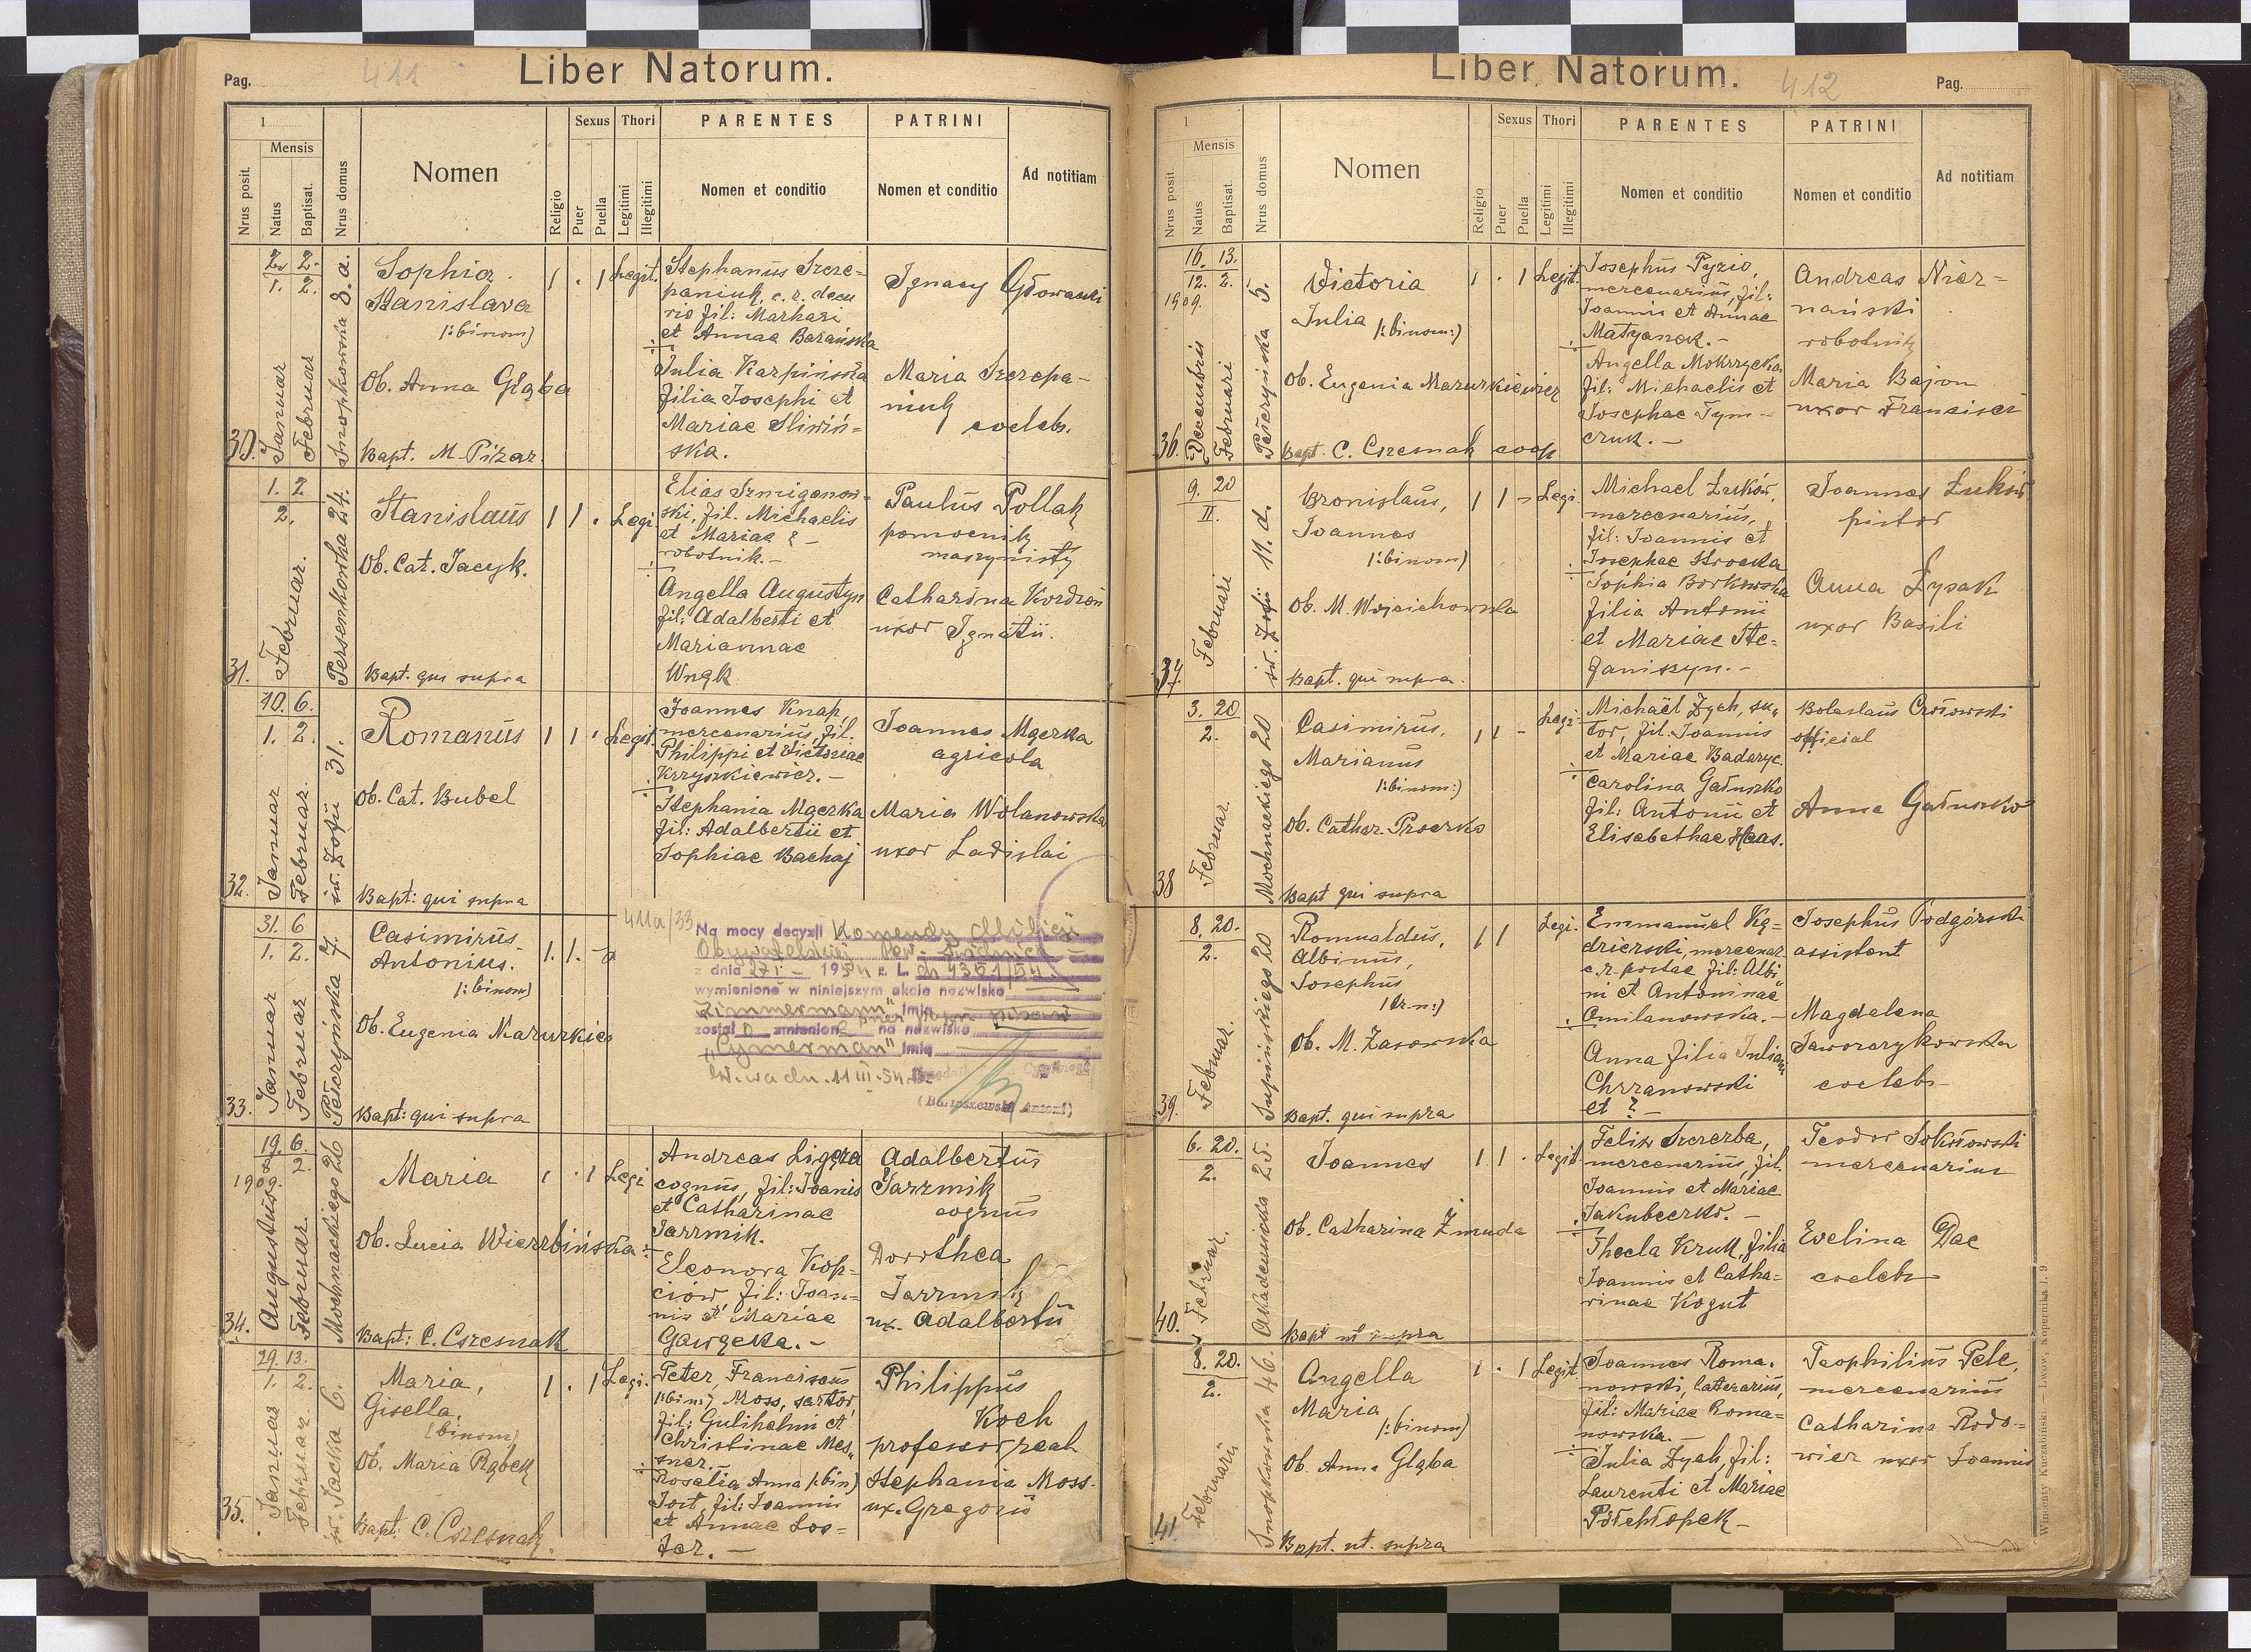 Pag. 411
Liber Natorum.
Nrus posit.
1
Mensis
Natus
Baptisat.
Nrus domus
Nomen
Religio
Sexus
Puer
Puella
Thori
Legitimi
Illegitimi
PARENTES
Nomen et conditio
PATRINI
Nomen et conditio
Ad notitiam
30.
2. 2.
1. 2.
Januar
Februar
Snopkowska 8. a.
Sophia
Stanislava
/:binom)
Ob. Anna Głąba
Bapt. M. Pizar.
1 . 1 Legit.
Stephanus Szcze-
paniuk, c. r. decu
rio fil: Markasi
et Annae Barańska
Julia Karpińska
filia Josephi et
Mariae Sliwiń-
ska.
Ignacy Głowacki
Maria Szczepa-
niuk
coelebs.
31.
1. 2
2.
Januar
Februar.
Persenkowska 24.
Stanislaus
Ob. Cat. Jacyk.
Bapt. qui supra
1 1 . Legi.
Elias Szmiganow-
ski, fil. Michaelis
et Mariae ? -
robotnik.-
Angella Augustyn
fil: Adalberti et
Mariannae
Wnęk
Paulus Pollak
pomocnik
maszynisty
Catharina Kordzoń
uxor Ignatii.
32.
10. 6.
1. 2.
Januar
Februar.
św. Zofii 31.
Romanus
Ob. Cat. Bubel
Bapt: qui supra
1 1 . Legit.
Joannes Knap,
mercenarius, fil.
Philippi et Victoriae
Krzyszkiewicz.-
Stephania Mgerka
fil: Adalbertii et
Sophiae Bachaj
Joannes Mgerka
agricola
Maria Wolanowska
uxor Ladislai
33.
31. 6
1. 2.
Januar
Februar
Pełczyńska 7.
Casimirus
Antonius.
/:binom)
Ob. Eugenia Mazurkiew
Bapt: qui supra
1. 1.
411a/33
Na mocy decyzji Komendy Milicji
z dnia 27 I - 1954 r. L.
wymienione w niniejszym akcie nazwisko
"Zimmermann" imię
został o zmienione na nazwisko
"Cymerman" imię
W-wa dn. 11 III. 54 r.
(Bartoszewski Antoni)
34.
19. 6.
8 2.
1909.
Augustus
Februar.
Mochnackiego 26
Maria
Ob. Lucia Wierzbińska
Bapt: C. Czesnak
1 . 1 Legi
Andreas Ligęza
cognus, fil: Joanis
et Catharinae
Jarzmik.
Eleonora Kop-
ciów fil: Joan-
nis et Mariae
Gawęcka.-
Adalbertus
Jarzmik
cognus
Dorothea
Jarzmik
ux. Adalbertii
35.
29. 13.
1. 2.
Januar
Februar.
św. Jacka 6.
Maria,
Gisella.
/binom)
Ob. Maria Rąbek
Bapt. C. Czesnak.
1 . 1 Legi.
Peter, Franciscus
/:bin:) Moss, sartor,
fil: Gulihelmi et
Christinae Mes-
sner.-
Rosalia Anna /:bin)
Jost, fil: Joannis
et Annae Los-
fer.-
Philippus
Koch
professor real.
Stephania Moss.
ux. Gregorii
Liber Natorum.
412 Pag.
Nrus posit.
1
Mensis
Natus
Baptisat.
Nrus domus
Nomen
Religio
Sexus
Puer
Puella
Thori
Legitimi
Illegitimi
PARENTES
Nomen et conditio
PATRINI
Nomen et conditio
Ad notitiam
36.
16. 13.
12. 2.
1909.
Decembris
Februari
Pełczyńska 5.
Victoria
Julia /:binom:)
Ob. Eugenia Mazurkiewicz
Bapt. C. Czesnak coop
1 . 1 Legit.
Josephus Pyzio,
mercenarius, fil:
Joannis et Annae
Matyanek.-
Angella Mokrzycka
fil: Michaelis et
Josephae Tym-
czuk.-
Andreas Nier-
nański
robotnik
Maria Bajon
uxor Francisci
37.
9. 20
II.
Februari
św. Zofii 11. d.
Bronislaus,
Joannes
/:binom)
Ob. M. Wojcichowska
Bapt. qui supra.
1 1 - Legi.
Michael Łuków,
mercenarius,
fil: Joannis et
Josephae Strocka
Sophia Borkowska
filia Antonii
et Mariae Ste-
faniszyn.-
Joannes Łuków
pictor
Anna Łysak
uxor Basili
38
3. 20
2.
Februar.
Mochnackiego 20
Casimirus,
Marianus
/:binom:)
Ob. Cathar. Procrks
Bapt qui supra
1 1 - Legi.
Michaël Zych, su-
tor, fil. Joannis
et Mariae Badaryc.
Carolina Gałuszko
fil: Antonii et
Elisabethae Haas.
Boleslaus Cłosowski
official
Anna Gałuszko
39.
8. 20.
2.
Februar.
Supińskiego 20
Romualdus,
Albinus,
Josephus
/tr.n:)
Ob. M. Zasowska
Bapt. qui supra
1 1 Legi.
Emmanuel Kę-
dzierski, mercenar
c.r. postae fil: Albi
ni et Antoninae
Omilanowska.-
Anna filia Juliani
Chrzanowski
et ? -
Josephus Podgórski
assistent
Magdalena
Jaworczykowska
coelebs
40.
6. 20.
2.
Februar.
Akademicka 25.
Joannes
Ob. Catharina Żmuda
Bapt ut supra
1 1 . Legit.
Felix Szczerba,
mercenarius, fil.
Joannis et Mariae
Jakubeczko.-
Thecla Kruk, filia
Joannis et Catha-
rinae Kogut
Teodor Sokołowski
mercenarius
Ewelina Dac
coelebs
41.
8. 20.
2.
Februarii
Snopkowska 46.
Angella
Maria
/:binom)
Ob. Anna Głąba
Bapt. ut. supra
1 . 1 Legit.
Joannes Roma-
nowski, laterarius,
fil: Mariae Roma-
nowska.-
Julia Zych, fil:
Laurenti et Mariae
Półchłopek-
Teophilius Pele,
mercenarius
Catharina Rodo-
wicz uxor Joannis
Wincenty Kuczabiński. — Lwów, Kopernika l. 9